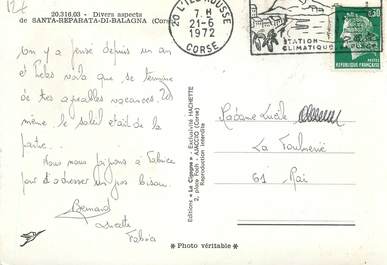 12€
20.316.03 - Divers aspects
de SANTA-REPARATA-DI-BALAGNA (Corse)
20 L'ILE-ROUSSE
7 H
21-6
1972
CORSE
STATION
CLIMATIQUE
0.30
REPUBLIQUE FRANÇAISE
POSTES
On y a pensé depuis un an
et hélas voilà que se termine
de très agréables vacances
même le soleil était de la
partie...
Nous nous joignons à Fabrice
pour t'adresser un gros bisou.
Bernard
Lucette
Fabrice
Editions « La Cigogne » - Exclusivité HACHETTE
2, place Foch - AJACCIO (Corse)
Reproduction interdite
Madame Lucile
La
61 - Rai
* Photo véritable *